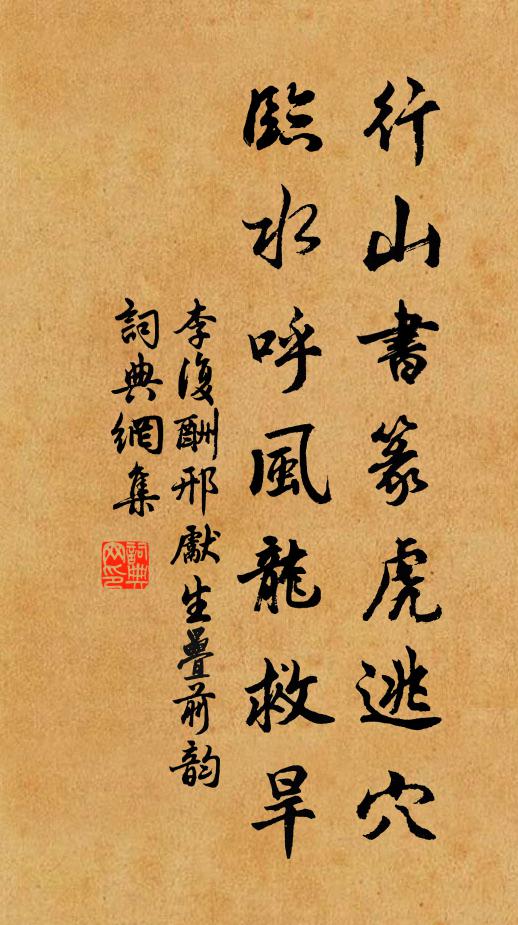 行山書篆虎逃穴
臨水呼風龍救旱
李復酬邢獻生疊前韵
詞典網集
詞典
网印